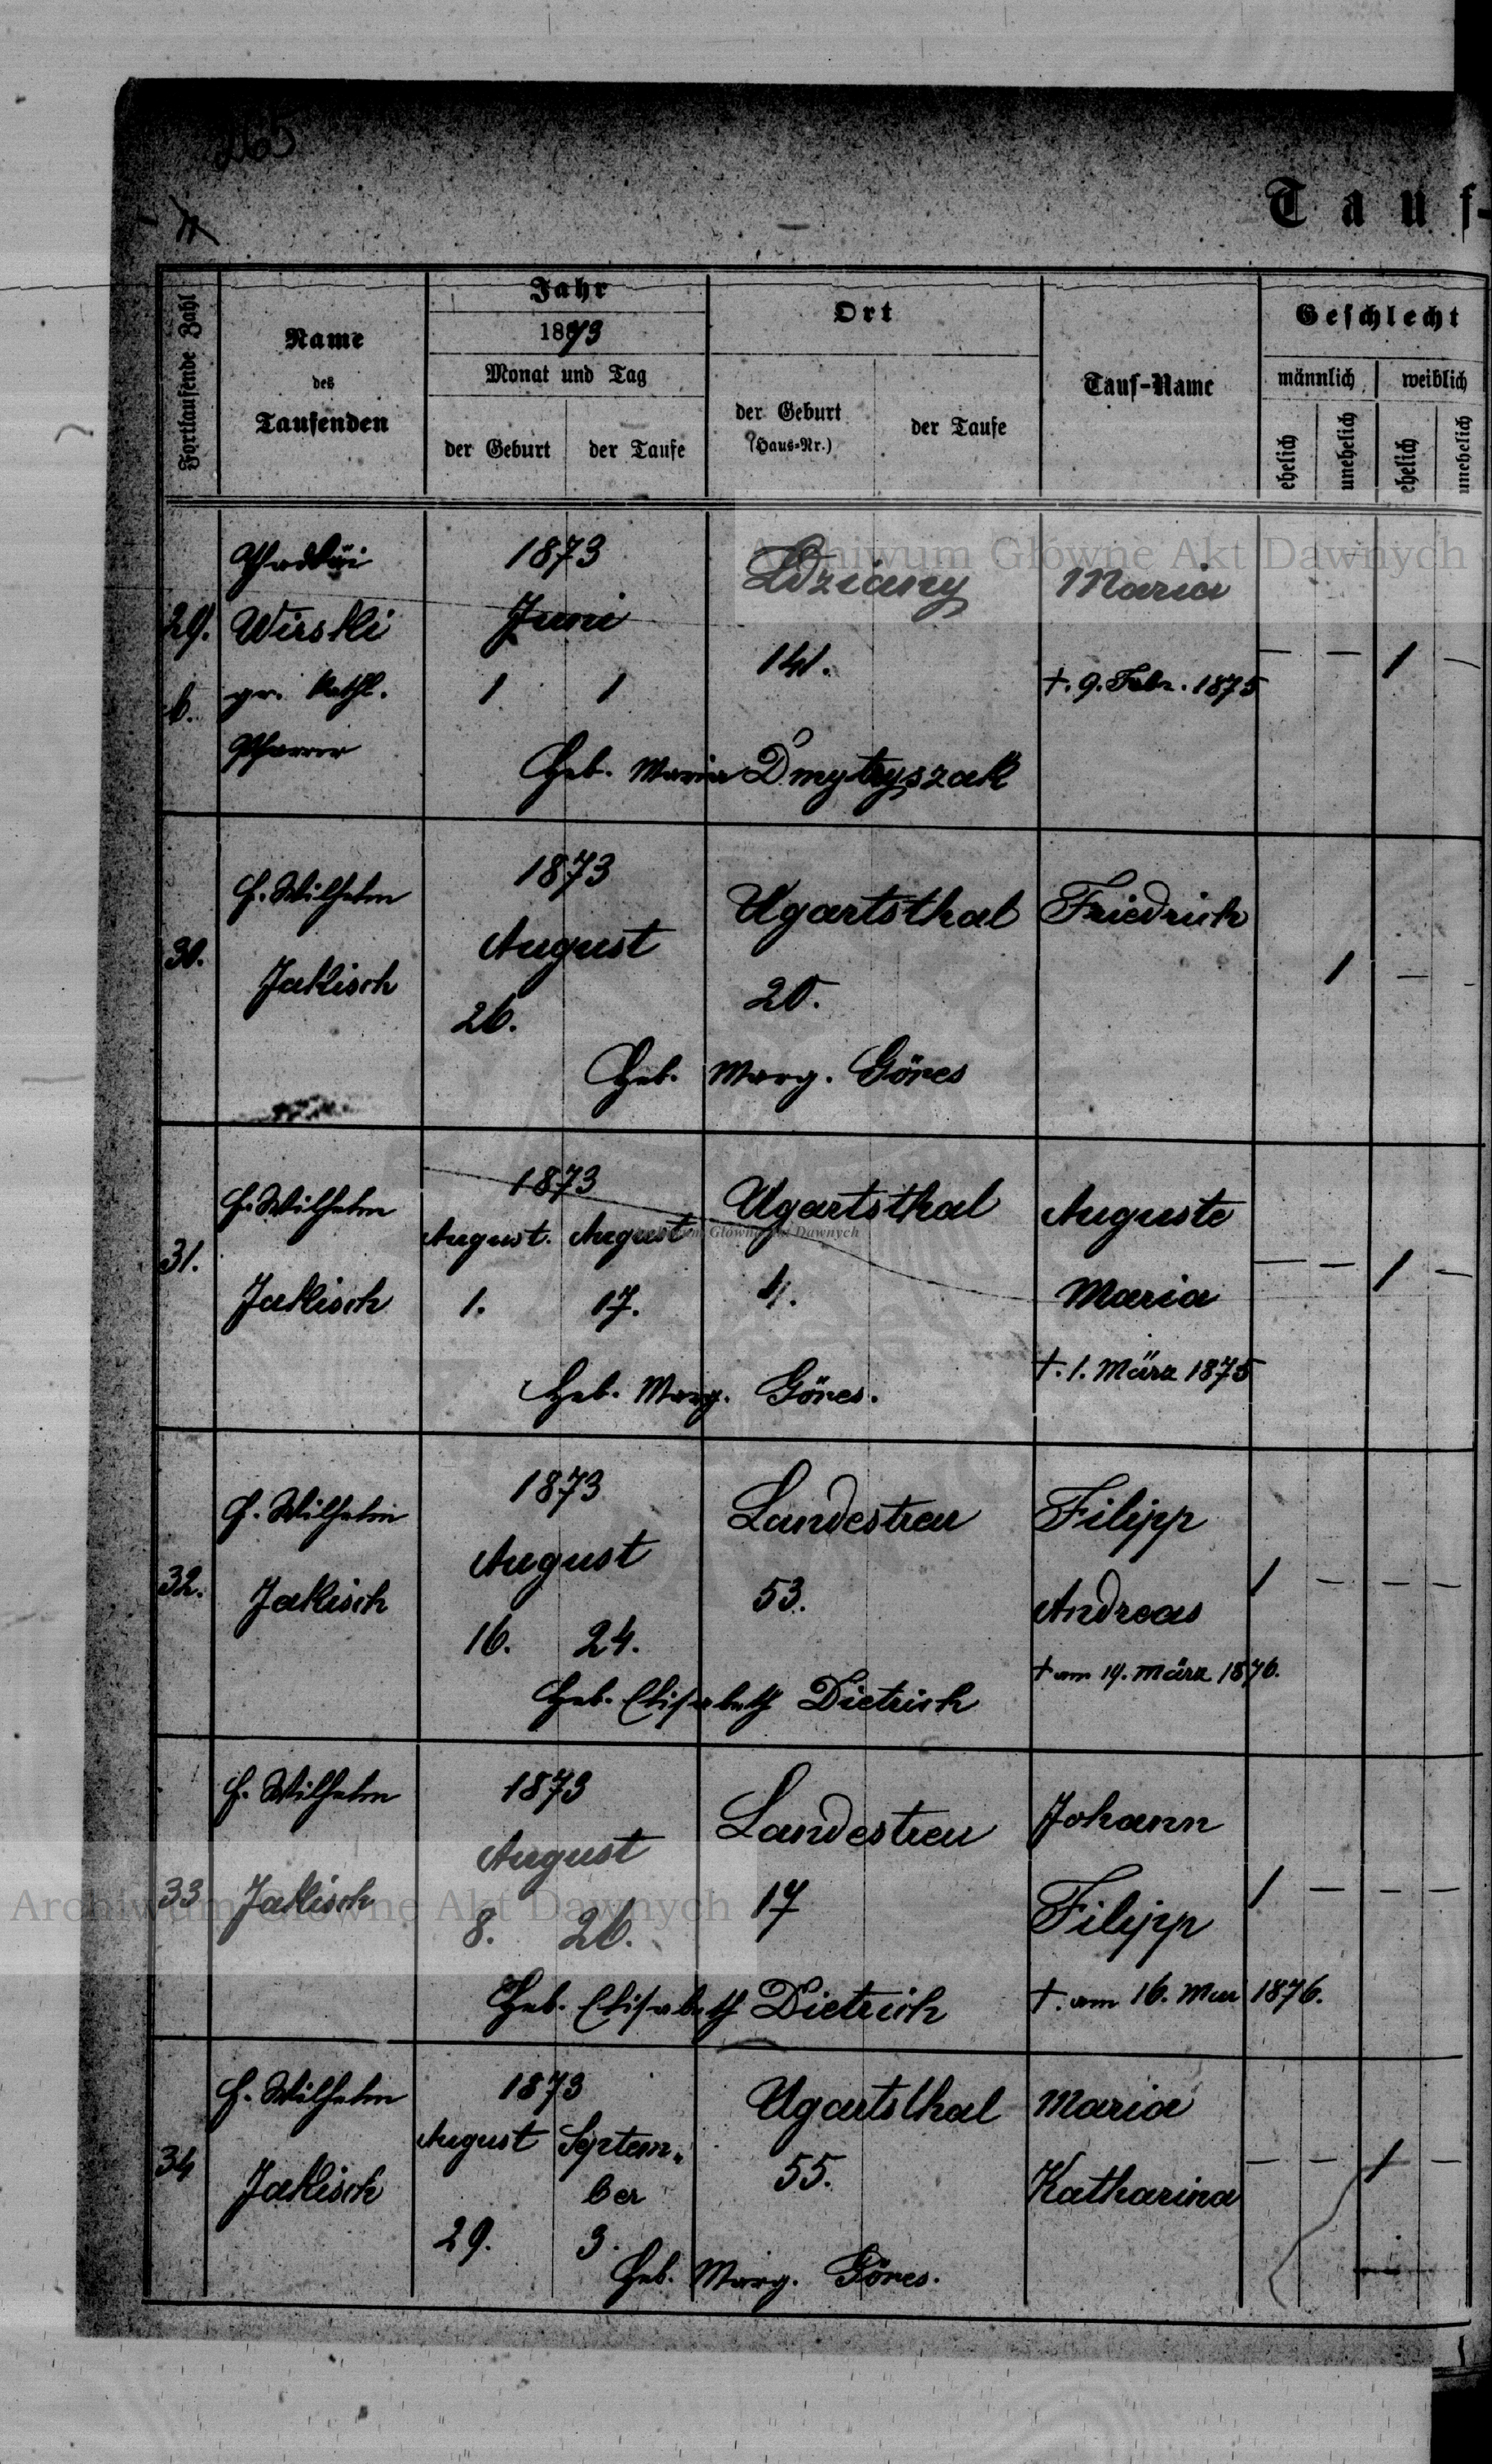 265
Tauf-
Fortlaufende Zahl
Name
des
Taufenden
Jahr
1873
Monat und Tag
der Geburt
der Taufe
Ort
der Geburt
(Haus-Nr.)
der Taufe
Tauf-Name
Geschlecht
männlich
weiblich
ehelich
unehelich
ehelich
unehelich
Archiwum Główne Akt Dawnych
29.
b.
Wirski
gr. kathl.
Pfarrer
1873
Juni
1 1
Ldziany
141.
Maria
†. 9. Febr. 1875
— — 1 —
Heb. Maria Dmytryszak
30.
H. Wilhelm
Jakisch
1873
August
26.
Ugartsthal
20.
Friedrich
1 —
Heb. Marg. Göres
31.
H. Wilhelm
Jakisch
1873
August. August
1. 17.
Ugartsthal
Auguste
Maria
†. 1. März 1875
— — 1 —
Heb. Marg. Göres.
32.
H. Wilhelm
Jakisch
1873
August
16. 24.
Landestreu
53.
Filipp
Andreas
† am 19. März 1876.
1 — — —
Heb. Elisabeth Dietrich
33
H. Wilhelm
Jakisch
1873
August
8. 26.
Landestreu
17
Johann
Filipp
†. am 16. 1876.
1 — — —
Heb. Elisabeth Dietrich
Archiwum Główne Akt Dawnych
34
H. Wilhelm
Jakisch
1873
August Septem-
ber
29. 3.
Ugartsthal
55.
Maria
Katharina
— — 1 —
Heb. Marg. Göres.